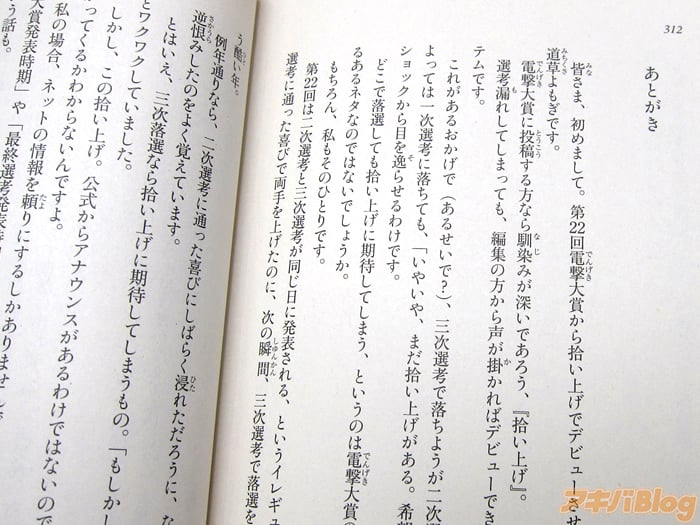 312
あとがき
皆さま、初めまして。第22回電撃大賞から拾い上げでデビューさせ
道草よもぎです。
電撃大賞に投稿する方なら馴染みが深いであろう、『拾い上げ』。
選考漏れしてしまっても、編集の方から声が掛かればデビューでき
テムです。
これがあるおかげで（あるせいで？）、三次選考で落ちようが二次選
よっては一次選考に落ちても、「いやいや、まだ拾い上げがある。希望
ショックから目を逸らせるわけです。
どこで落選しても拾い上げに期待してしまう、というのは電撃大賞の
るあるネタなのではないでしょうか。
もちろん、私もそのひとりです。
第22回は二次選考と三次選考が同じ日に発表される、というイレギュ
選考に通った喜びで両手を上げたのに、次の瞬間、三次選考で落選を
う酷い年。
例年通りなら、二次選考に通った喜びにしばらく浸れただろうに、な
逆恨みしたのをよく覚えています。
とはいえ、三次落選なら拾い上げに期待してしまうもの。「もしかし
とワクワクしていました。
しかし、この拾い上げ。公式からアナウンスがあるわけではないので
がってくるかわからないんですよ。
私の場合、ネットの情報を頼りにするしかありませんで
大賞発表時期」や「最終選考発表時
う話も。
アキバBlog